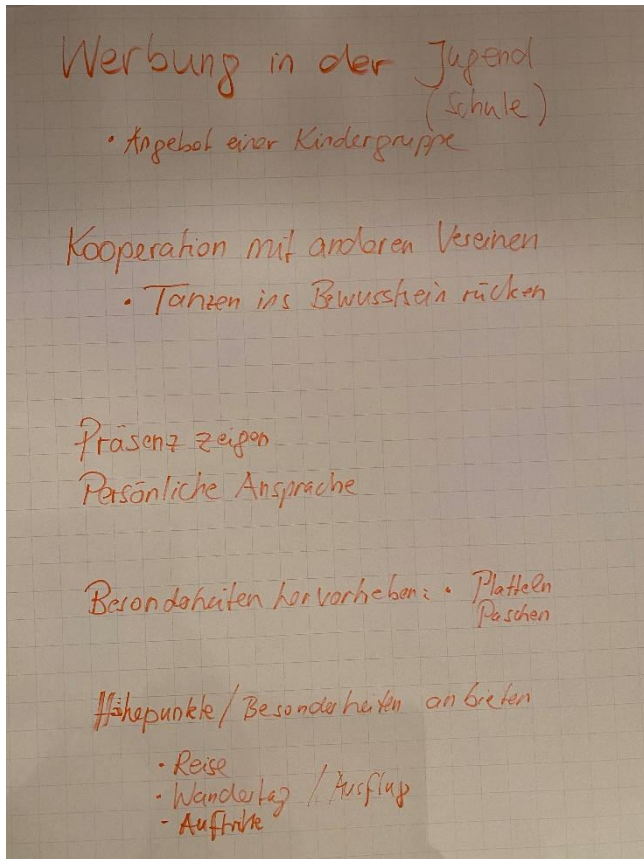 Werbung in der Jugend
(Schule)
• Angebot einer Kindergruppe
Kooperation mit anderen Vereinen
• Tanzen ins Bewusstsein rücken
Präsenz zeigen
Persönliche Ansprache
Besonderheiten hervorheben: • Platteln
Paschen
Höhepunkte/Besonderheiten anbieten
• Reise
• Wandertag / Ausflug
- Auftritte